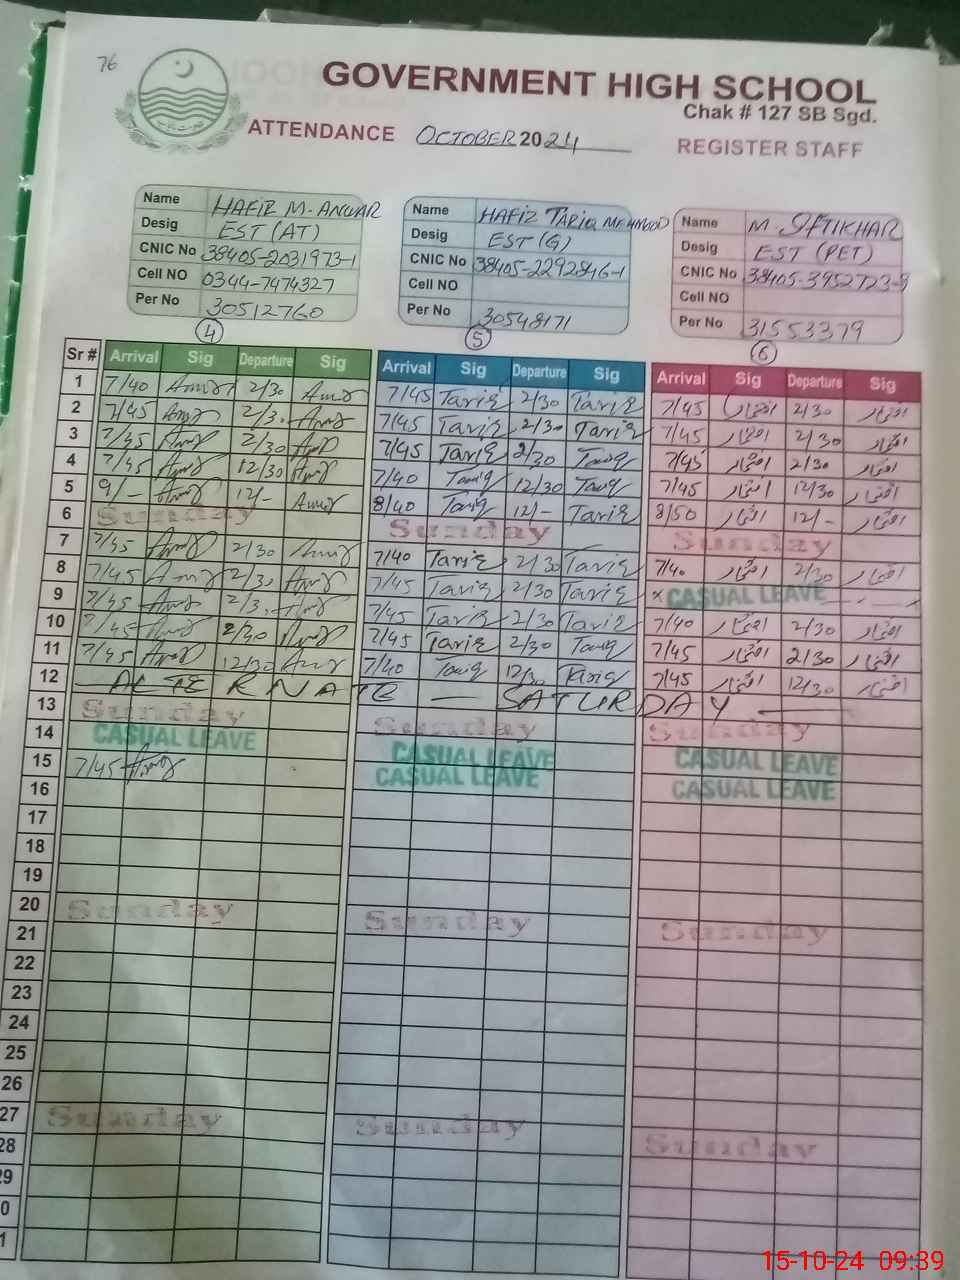 76
GOVERNMENT HIGH SCHOOL
Chak # 127 SB Sgd.
ATTENDANCE OCTOBER 2024 REGISTER STAFF
Name HAFIZ M. ANWAR Name HAFIZ TARIQ MEHMOOD Name M IFTIKHAR
Desig EST (AT) Desig EST (G) Desig EST (PET)
CNIC No 38405-2031973-1 CNIC No 38405-2292846-1 CNIC No 38405-3952723-9
Cell NO 0344-7474327 Cell NO Cell NO
Per No 30512760 Per No 30548171 Per No 31553379
4 5 6
Sr # Arrival Sig Departure Sig Arrival Sig Departure Sig Arrival Sig Departure Sig
1 7/40 Anwar 2/30 Anwar 7/45 Tariq 2/30 Tariq 7/45 افتخار 2/30 افتخار
2 7/45 Anwar 2/30 Anwar 7/45 Tariq 2/30 Tariq 7/45 افتخار 2/30 افتخار
3 7/45 Anwar 2/30 Anwar 7/45 Tariq 2/30 Tariq 7/45 افتخار 2/30 افتخار
4 7/45 Anwar 12/30 Anwar 7/40 Tariq 12/30 Tariq 7/45 افتخار 12/30 افتخار
5 9/- Anwar 12/- Anwar 8/40 Tariq 12/- Tariq 8/50 افتخار 12/- افتخار
6 Sunday Sunday Sunday
7 7/45 Anwar 2/30 Anwar 7/40 Tariq 2/30 Tariq 7/40 افتخار 2/30 افتخار
8 7/45 Anwar 2/30 Anwar 7/45 Tariq 2/30 Tariq x CASUAL LEAVE x
9 7/45 Anwar 2/30 Anwar 7/45 Tariq 2/30 Tariq 7/40 افتخار 2/30 افتخار
10 7/45 Anwar 2/30 Anwar 7/45 Tariq 2/30 Tariq 7/45 افتخار 2/30 افتخار
11 7/45 Anwar 12/30 Anwar 7/40 Tariq 12/30 Tariq 7/45 افتخار 12/30 افتخار
12 — ALTERNATE — SATURDAY —
13 Sunday Sunday Sunday
14 CASUAL LEAVE CASUAL LEAVE CASUAL LEAVE
15 7/45 Anwar CASUAL LEAVE CASUAL LEAVE
16
17
18
19
20 Sunday Sunday Sunday
21
22
23
24
25
26
27 Sunday Sunday Sunday
28
29
0
1
15-10-24 09:39